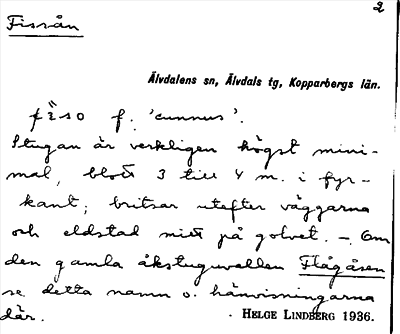 2
Fissån
Älvdalens sn, Älvdals tg, Kopparbergs län.
f. 'cunnus'.
Stugan är verkligen högst mini-
mal, blott 3 till 4 m. i fyr-
kant; britsar utefter väggarna
och eldstad mitt på golvet. – Om
den gamla åkstuguvallen Flågåsen
se detta namn o. hänvisningarna
där.
HELGE LINDBERG 1936.